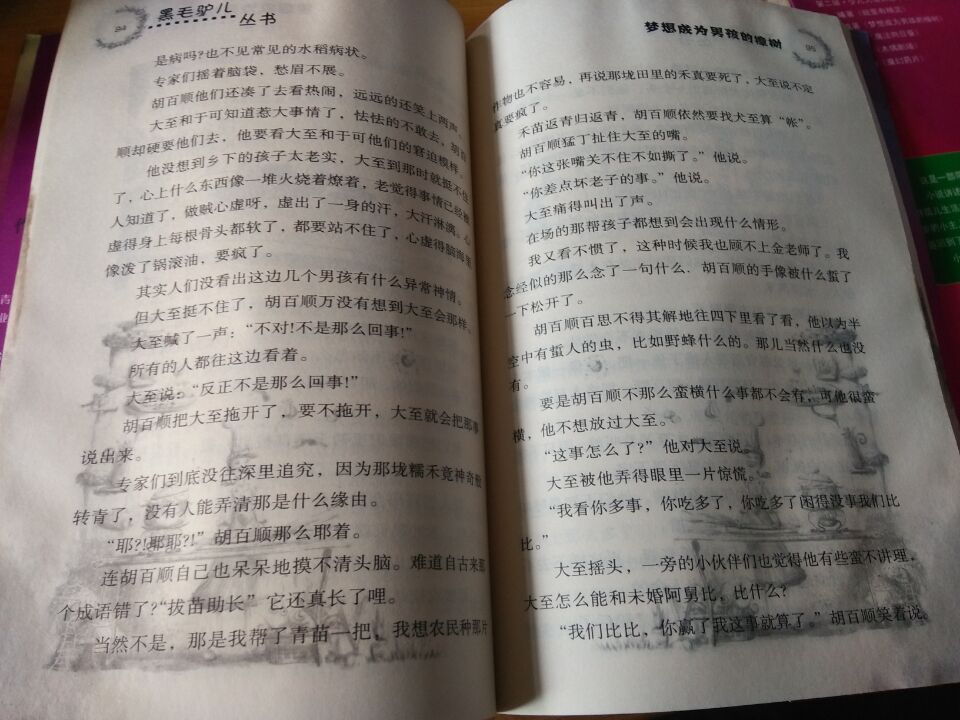 94
黑毛驴儿
丛书
是病吗?也不见常见的水稻病状。
专家们摇着脑袋，愁眉不展。
胡百顺他们还凑了去看热闹，远远的还笑上两声。
大至和于可知道惹大事情了，怯怯的不敢去。胡百
顺却硬要他们去，他要看大至和于可他们的窘迫模样。
他没想到乡下的孩子太老实，大至到那时就挺不住
了，心上什么东西像一堆火烧着燎着，老觉得事情已经被
人知道了，做贼心虚呀，虚出了一身的汗，大汗淋漓。心
虚得身上每根骨头都软了，都要站不住了，心虚得脑海里
像泼了锅滚油，要疯了。
其实人们没看出这边几个男孩有什么异常神情。
但大至挺不住了，胡百顺万没有想到大至会那样。
大至喊了一声：“不对!不是那么回事!”
所有的人都往这边看着。
大至说：“反正不是那么回事!”
胡百顺把大至拖开了，要不拖开，大至就会把那事
说出来。
专家们到底没往深里追究，因为那垅糯禾竟神奇般
转青了，没有人能弄清那是什么缘由。
“耶?!耶耶?!”胡百顺那么耶着。
连胡百顺自己也呆呆地摸不清头脑。难道自古来那
个成语错了?“拔苗助长”它还真长了哩。
当然不是，那是我帮了青苗一把，我想农民种那片
梦想成为男孩的樟树
95
作物也不容易，再说那垅田里的禾真要死了，大至说不定
真要疯了。
禾苗返青归返青，胡百顺依然要找犬至算“帐”。
胡百顺猛丁扯住大至的嘴。
“你这张嘴关不住不如撕了。”他说。
“你差点坏老子的事。”他说。
大至痛得叫出了声。
在场的那帮孩子都想到会出现什么情形。
我又看不惯了，这种时候我也顾不上金老师了。我
念经似的那么念了一句什么．胡百顺的手像被什么蜇了
一下松开了。
胡百顺百思不得其解地往四下里看了看，他以为半
空中有蜇人的虫，比如野蜂什么的。那儿当然什么也没
有。
要是胡百顺不那么蛮横什么事都不会有，可他很蛮
横，他不想放过大至。
“这事怎么了?”他对大至说。
大至被他弄得眼里一片惊慌。
“我看你多事，你吃多了，你吃多了困得没事我们比
比。”
大至摇头，一旁的小伙伴们也觉得他有些蛮不讲理，
大至怎么能和未婚阿舅比，比什么?
“我们比比，你赢了我这事就算了。”胡百顺笑着说。